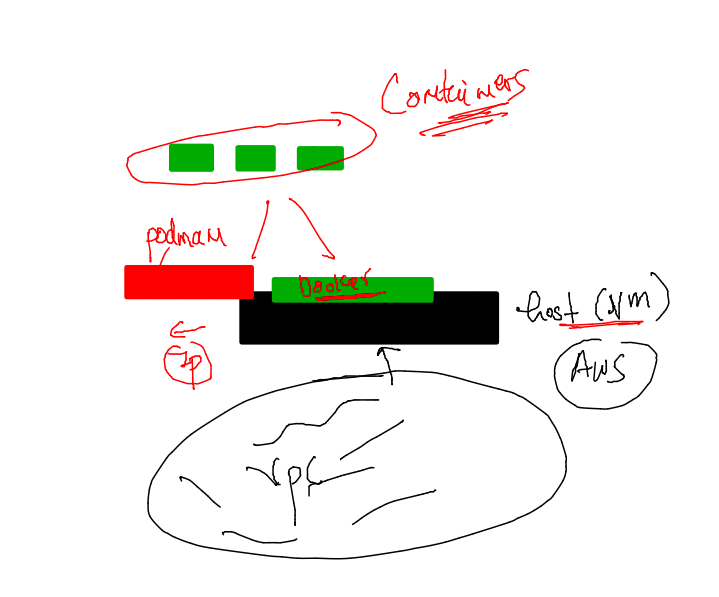 Containers
podman
Docker
host (VM)
AWS
VPC